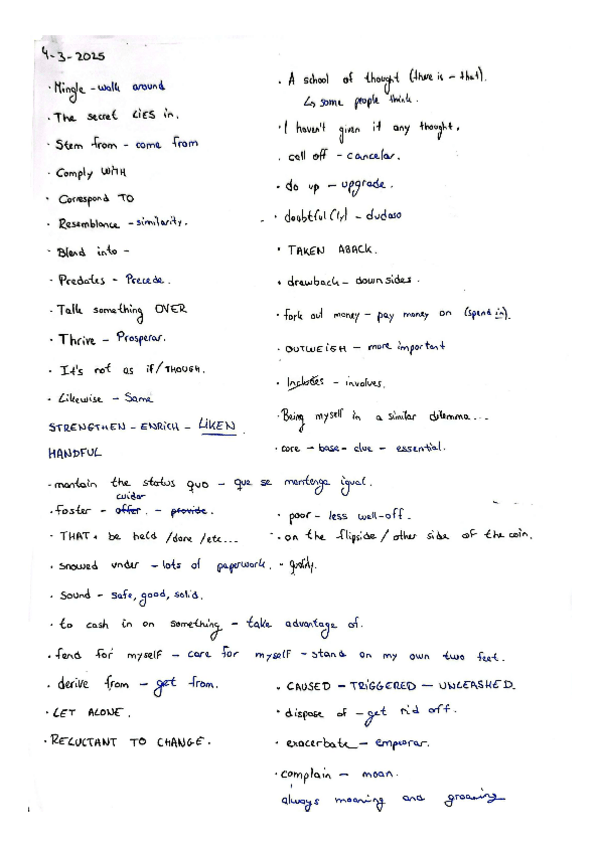 4-3-2025
· Mingle - walk around
· The secret LIES in.
· Stem from - come from
· Comply WITH
· Correspond TO
· Resemblance - similarity.
· Blend into -
· Predates - Precede.
· Talk something OVER
· Thrive - Prosperar.
· It's not as if/THOUGH.
· Likewise - Same
STRENGTHEN - ENRICH - LIKEN
HANDFUL
· A school of thought (there is - that).
↳ some people think.
· I haven't given it any thought.
· call off - cancelar.
· do up - upgrade.
· doubtful(ly) - dudoso
· TAKEN ABACK.
· drawback - downsides.
· fork out money - pay money on (spend in).
· OUTWEIGH - more important
· Includes - involves.
· Being myself in a similar dilemma...
· core - base - clue - essential.
· mantain the status quo - que se mantenga igual.
cuidar
· foster - offer. - provide.
· poor - less well-off.
· THAT + be held /done /etc...
· on the flipside / other side of the coin.
· snowed under - lots of paperwork.
· Sound - safe, good, solid.
· to cash in on something - take advantage of.
· fend for myself - care for myself - stand on my own two feet.
· derive from - get from.
· LET ALONE.
· RELUCTANT TO CHANGE.
· CAUSED - TRIGGERED - UNLEASHED.
· dispose of - get rid off.
· exacerbate - empeorar.
· complain - moan.
always moaning and groaning